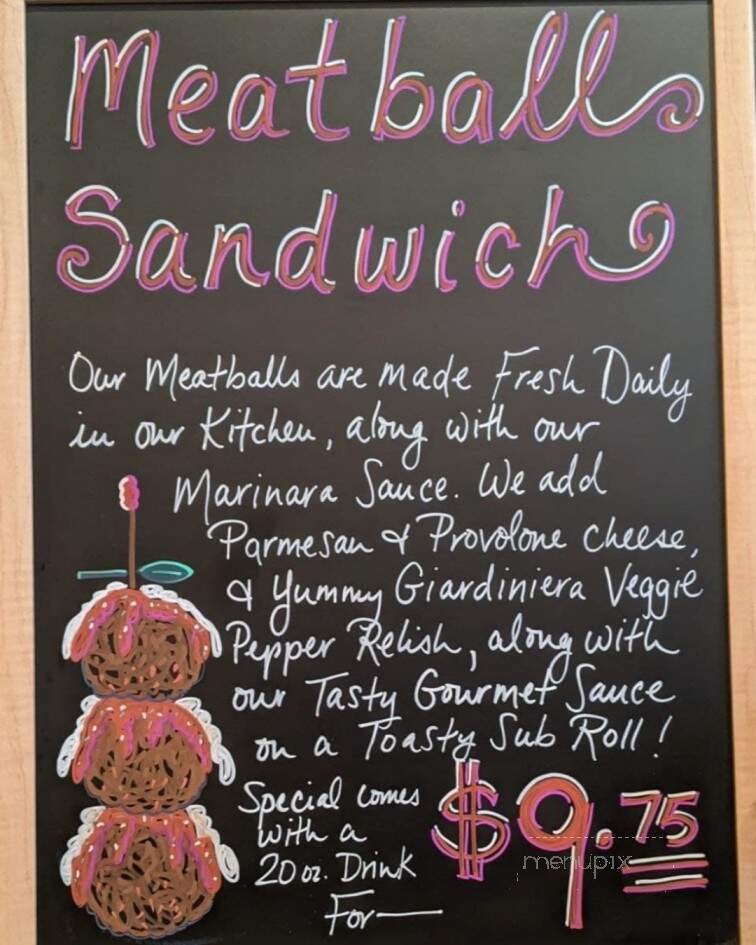 Meatball
Sandwich
Our Meatballs are made Fresh Daily
in our Kitchen, along with our
Marinara Sauce. We add
Parmesan & Provolone cheese,
& Yummy Giardiniera Veggie
Pepper Relish, along with
our Tasty Gourmet Sauce
on a Toasty Sub Roll!
Special comes
with a
20 oz. Drink
For—
$9.75
menupix